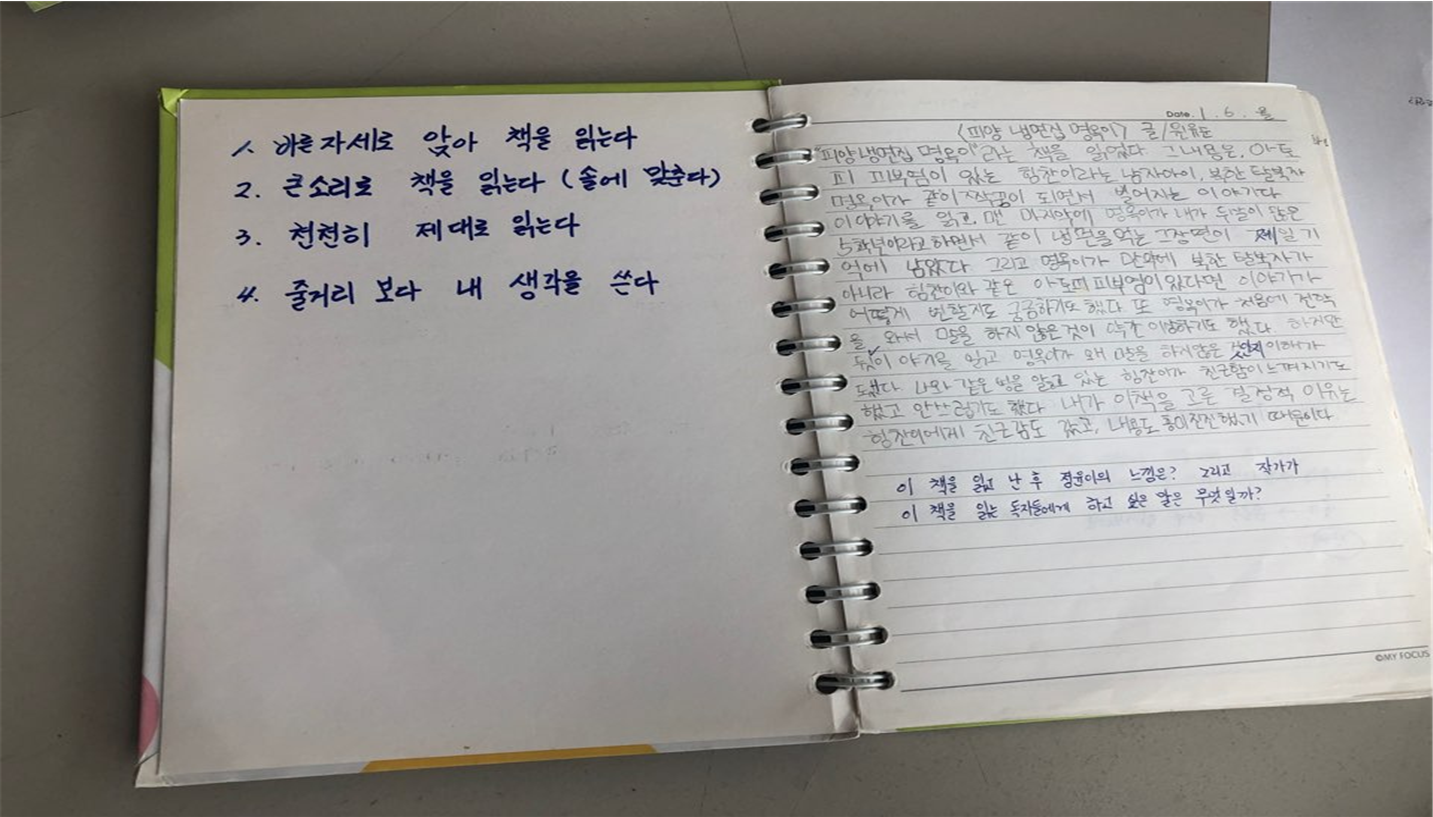 1. 바른자세로 앉아 책을 읽는다
2. 큰소리로 책을 읽는다 (솔에 맞춘다)
3. 천천히 제대로 읽는다
4. 줄거리 보다 내 생각을 쓴다
Date. 1. 6. 월
<피양 냉면집 명옥이> 글/원유순
"피양냉면집 명옥이"라는 책을 읽었다 그내용은, 아토
피 피부염이 있는 힘찬이라는 남자아이, 북한 탈북자
명옥이가 같이 짝꿍이 되면서 벌어지는 이야기다
이야기를 읽고, 맨 마지막에 명옥이가 내가 두말이 않은
5학년이라고하면서 같이 냉면을먹는 그장면이 제일 기
억에 남았다 그리고 명옥이가 만약에 북한 탈북자가
아니라 힘찬이와 같은 아토피 피부염이 있다면 이야기가
어떻게 변할지도 궁금하기도 했다 또 명옥이가 처음에 전학
을 와서 말을 하지 않은 것이 약간 이상하기도 했다. 하지만
뒷이야기를 읽고 명옥이가 왜 말을 하지않은 것인지 이해가
됐다 나와 같은 병을 앓고 있는 힘찬이가 친근함이 느껴지기도
했고 안쓰럽기도 했다 내가 이책을 고른 결정적 이유는
힘찬이에게 친근감도 갔고, 내용도 흥미진진했기 때문이다
이 책을 읽고 난 후 정윤이의 느낌은? 그리고 작가가
이 책을 읽는 독자들에게 하고 싶은 말은 무엇일까?
©MY FOCUS